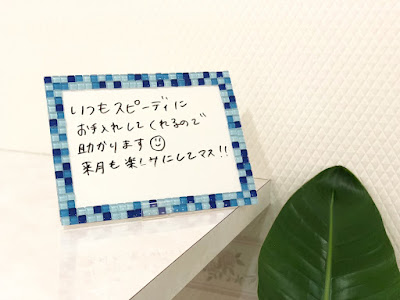 いつもスピーディに
お手入れしてくれるので
助かります☺
来月も楽しみにしてマス!!